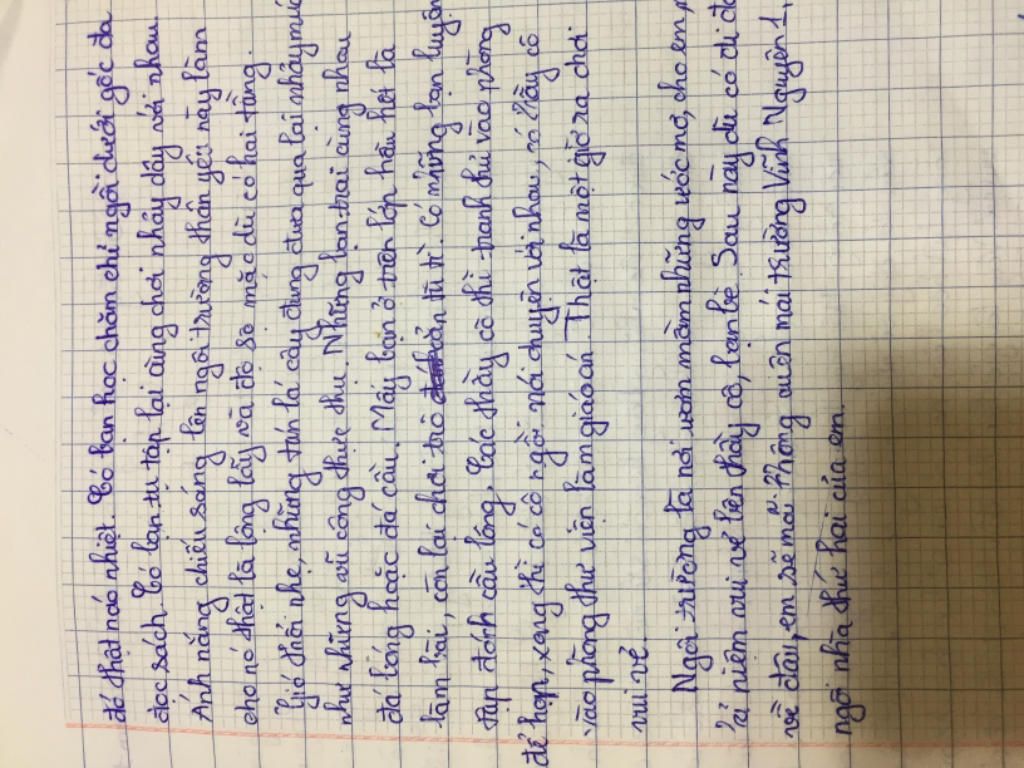 đó thật náo nhiệt. Có bạn học chăm chỉ ngồi dưới gốc đa
đọc sách. Có bạn tụ tập lại cùng chơi nhảy dây với nhau.
Ánh nắng chiếu sáng lên ngôi trường thân yếu này làm
cho nó thật là lộng lẫy và đồ sộ mặc dù có hai tầng.
Gió thổi nhẹ, những tán lá cây đung đưa qua lại nhảy
như những vũ công thực thụ. Những bạn trai cùng nhau
đá bóng hoặc đá cầu. Mấy bạn ở trên lớp hầu hết là
làm bài, còn lại chơi trò oẳn tù tì. Có những bạn luyện
tập đánh cầu lông. Các thầy cô thì tranh thủ vào phòng
để họp, xong thì có cô ngồi nói chuyện với nhau, có thầy cô
vào phòng thư viện làm giáo án. Thật là một giờ ra chơi
vui vẻ.
Ngôi trường là nơi ươm mầm những ước mơ, cho em
niềm vui về bên thầy cô, bạn bè. Sau này dù có đi
về đâu, em sẽ mãi không quên mái trường Vĩnh Nguyên 1,
ngôi nhà thứ hai của em.